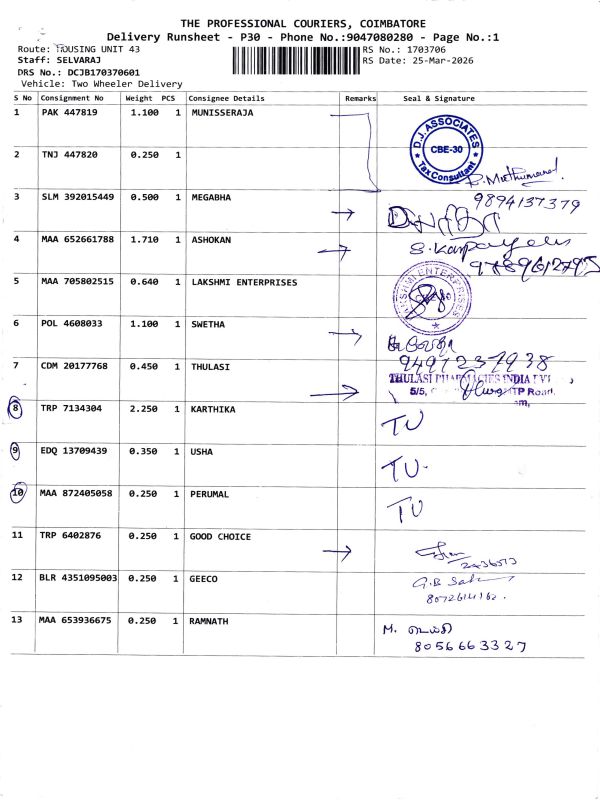 THE PROFESSIONAL COURIERS, COIMBATORE
Delivery Runsheet - P30 - Phone No.:9047080280 - Page No.:1
Route: HOUSING UNIT 43
RS No.: 1703706
Staff: SELVARAJ
RS Date: 25-Mar-2026
DRS No.: DCJB170370601
Vehicle: Two Wheeler Delivery
S No Consignment No Weight PCS Consignee Details Remarks Seal & Signature
1 PAK 447819 1.100 1 MUNISSERAJA
D.J. ASSOCIATES
CBE-30
Tax Consultant
2 TNJ 447820 0.250 1
3 SLM 392015449 0.500 1 MEGABHA
9894137379
4 MAA 652661788 1.710 1 ASHOKAN
5 MAA 705802515 0.640 1 LAKSHMI ENTERPRISES
LAKSHMI ENTERPRISES
6 POL 4608033 1.100 1 SWETHA
7 CDM 20177768 0.450 1 THULASI
THULASI PHARMACIES INDIA
5/5, TP Road,
8 TRP 7134304 2.250 1 KARTHIKA
TU
9 EDQ 13709439 0.350 1 USHA
TU.
10 MAA 872405058 0.250 1 PERUMAL
TU
11 TRP 6402876 0.250 1 GOOD CHOICE
12 BLR 4351095003 0.250 1 GEECO
13 MAA 653936675 0.250 1 RAMNATH
M.
8056663327